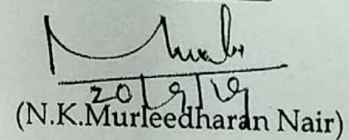 20/9/19
(N.K.Murleedharan Nair)